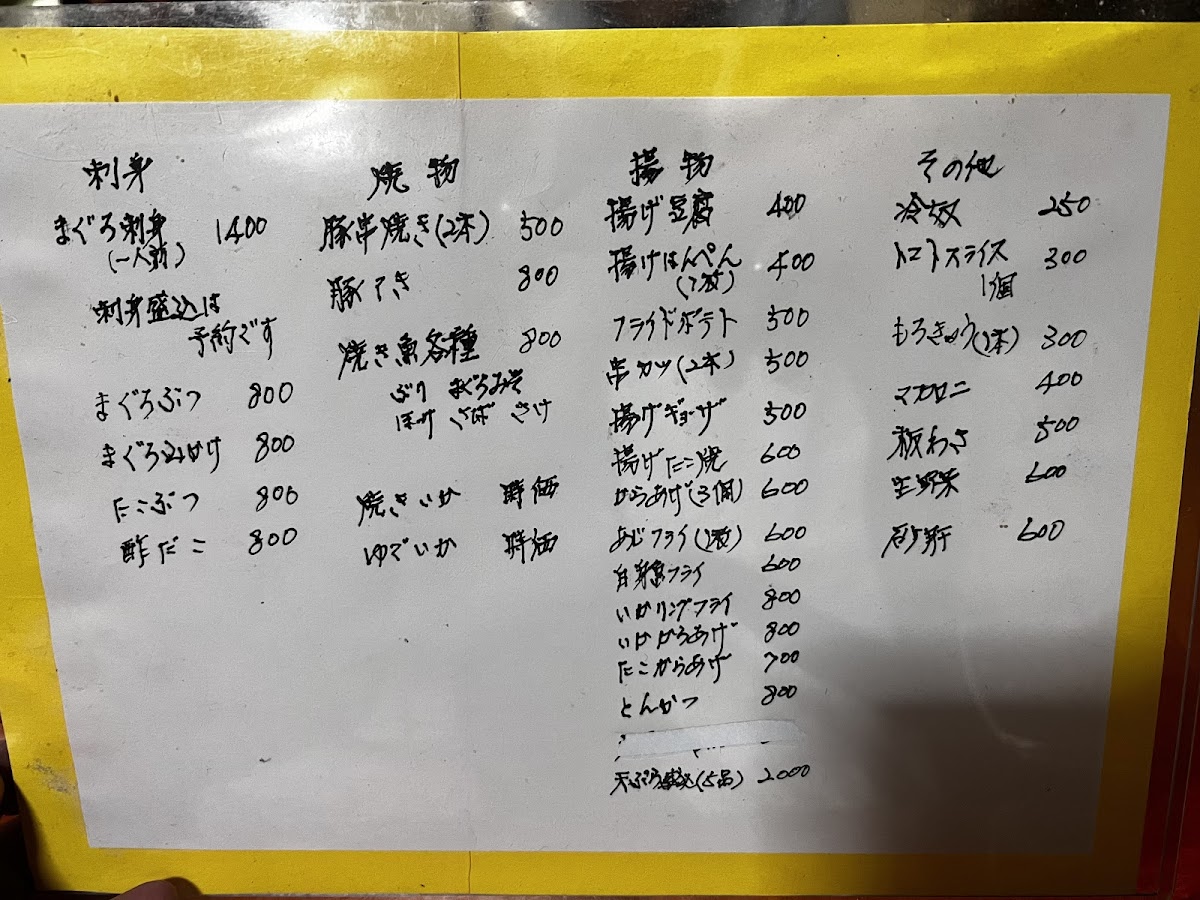 刺身
まぐろ刺身 1400
(一人前)
刺身盛込は
予約です
まぐろぶつ 800
まぐろみゆけ 800
たこぶつ 800
酢だこ 800
焼物
豚串焼き(2本) 500
豚てき 800
焼き魚各種 800
ぶり まぐろみそ
ほっけ さば さけ
焼きいか 時価
ゆでいか 時価
揚物
揚げ豆腐 400
揚げはんぺん 400
(1枚)
フライドポテト 500
串カツ(2本) 500
揚げギョーザ 500
揚げたこ焼 600
からあげ(3個) 600
あじフライ(1枚) 600
白身魚フライ 600
いかリングフライ 800
いかからあげ 800
たこからあげ 700
とんかつ 800
天ぷら盛込(5品) 2000
その他
冷奴 250
トマトスライス 300
1個
もろきゅう(1本) 300
マカロニ 400
板わさ 500
生野菜 600
砂肝 600